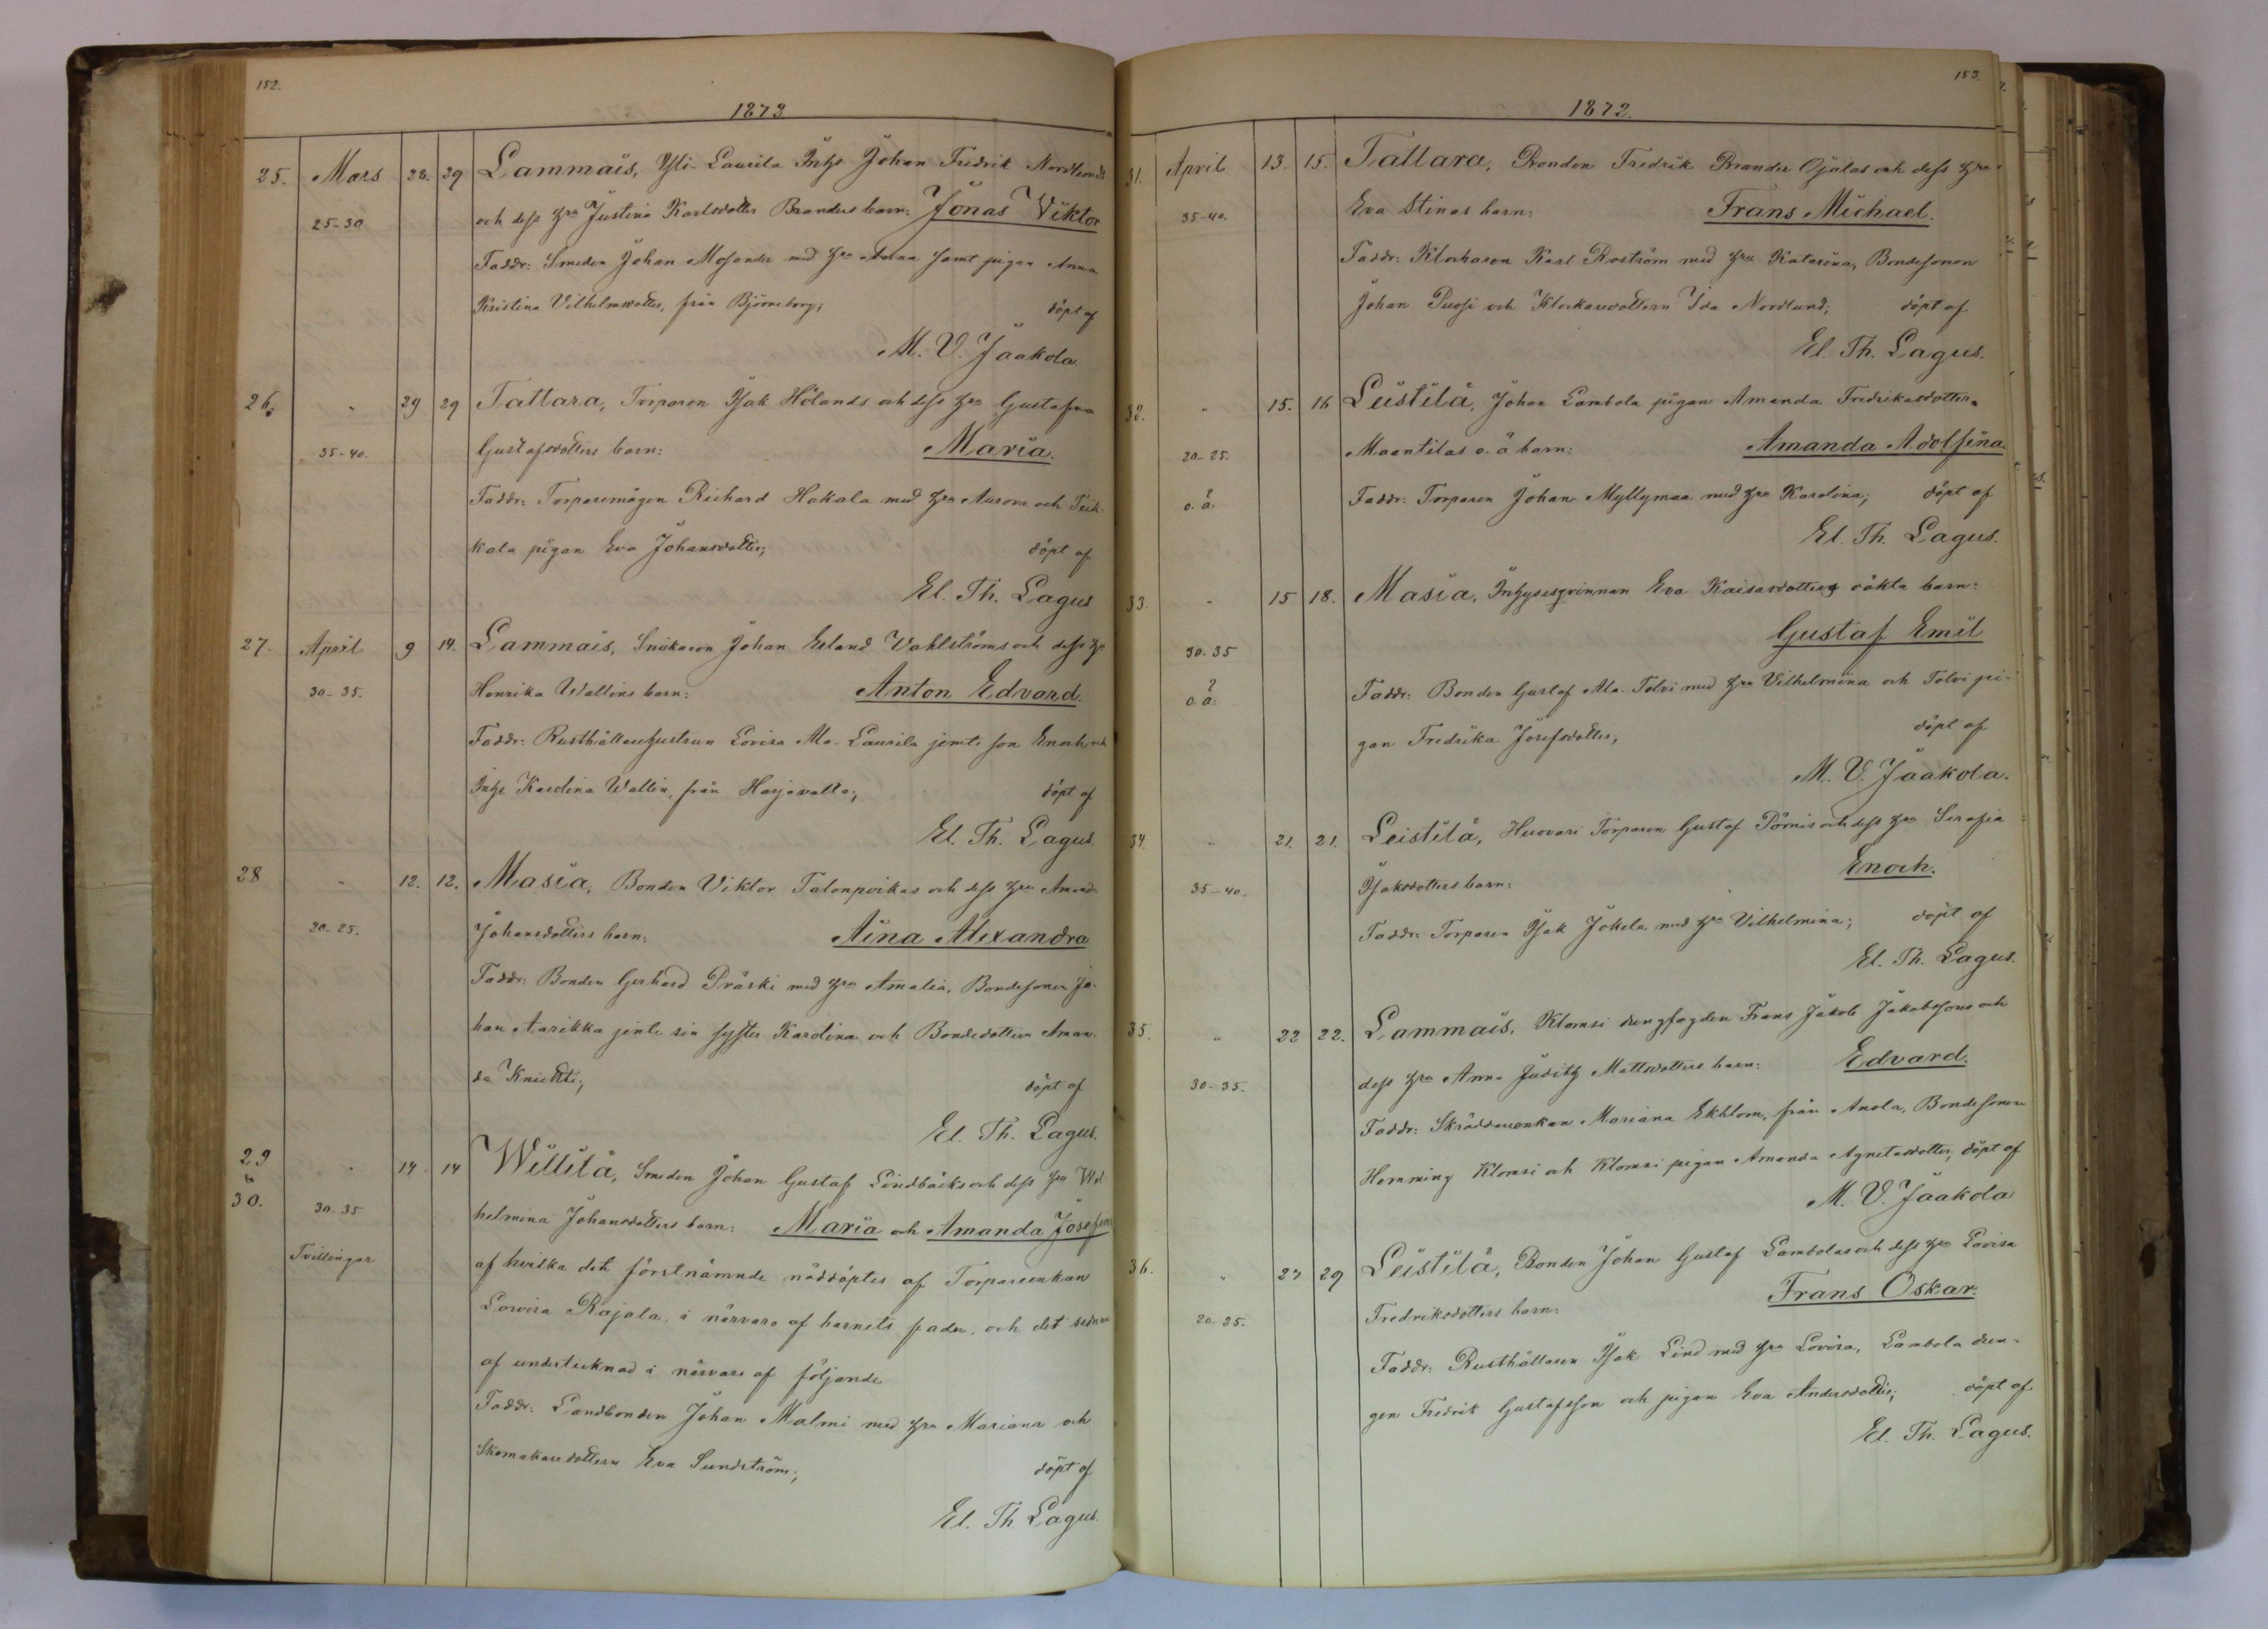 152.
1873
25. Mars 28. 29 Lammais, Yli-Laurila Inhs Johan Fredrik Nordlunds
25-30 och dess hru Justina Karlsdotter Branders barn: Jonas Viktor
Faddr: Smeden Johan Mosander med hru Anna samt pigan Anna
Kristina Vilhelmsdotter, från Björneborg; döpt af
M. V. Jaakola.
26. " 29 29 Tattara, Torparen Isak Hölands och dess hru Gustafva
35-40. Gustafsdotters barn: Maria.
Faddr: Torparemågen Richard Hakala med hru Aurora och
kala pigan Eva Johansdotter; döpt af
El. Th. Lagus
27. April 9 14. Lammais, Snikaren Johan Erland Vahlströms och dess hru
30-35. Henrika Wallins barn: Anton Edvard.
Faddr: Rusthållarehustrun Lovisa Ala-Laurila jemte son Enoch och
Inhs Karolina Wallin, från Harjavalta; döpt af
El. Th. Lagus.
28 " 12. 12. Masia, Bonden Viktor Talonpoikas och dess hru Amanda
20-25. Johansdotters barn: Aina Alexandra
Faddr: Bonden Gerhard Präski med hru Amalia, Bondesonen Jo-
han Aarikka jemte sin syster Karolina och Bondedottern Aman-
da Knichti; döpt af
El. Th. Lagus.
29 " 14 14 Willilä, Smeden Johan Gustaf Lindbäcks och dess hru Wil-
&
30. 30-35 helmina Johansdotters barn: Maria och Amanda Josefina
Tvillingar af hvilka det förstnämnde nöddöptes af Torpareenkan
Lovisa Rajala, i närvaro af barnets fader, och det sednare
af undertecknad i närvaro af följande
Faddr: Landbonden Johan Malmi med hru Mariana och
Skomakaredottern Eva Sundström; döpt af
El. Th. Lagus.
153.
1872.
31. April 13. 15. Tattara, Bonden Fredrik Brander Ojalas och dess hru
35-40. Eva Stinas barn: Frans Michael.
Faddr: Klockaren Karl Roström med hru Katarina, Bondesonen
Johan Puosi och Klockaredottern Ida Nordlund; döpt af
El. Th. Lagus.
32. " 15. 16 Leistilä, Johan Lambola pigan Amanda Fredrikasdotter
20-25. Maantilas o. ä barn: Amanda Adolfina.
o. ä. Faddr: Torparen Johan Myllymaa med hru Karolina; döpt af
El. Th. Lagus.
33. " 15 18. Masia, Inhysesqvinnan Eva Kaisasdotters oäkta barn:
30-35 Gustaf Emil
o. ä. Faddr: Bonden Gustaf Ala-Tolvi med hru Vilhelmina och Tolvi pi-
gan Fredrika Josefsdotter; döpt af
M. V. Jaakola.
34. " 21. 21. Leistilä, Huovari Torparen Gustaf Pörnis och dess hru Serafia
35-40. Isaksdotters barn: Enoch.
Faddr: Torparen Isak Jokela med hru Vilhelmina; döpt af
El. Th. Lagus.
35. " 22 22. Lammais, Klomsi drengfogden Frans Jakob Jakobssons och
30-35. dess hru Anna Judith Mattsdotters barn: Edvard.
Faddr: Skräddareenkan Mariana Ekblom, från Anola, Bondesonen
Hemming Klomsi och Klomsi pigan Amanda Agnetasdotter; döpt af
M. V. Jaakola
36. " 27 29 Leistilä, Bonden Johan Gustaf Lambolas och dess hru Lovisa
20-25. Fredriksdotters barn: Frans Oskar.
Faddr: Rusthållaren Isak Lind med hru Lovisa, Lambola dren-
gen Fredrik Gustafsson och pigan Eva Andersdotter; döpt af
El. Th. Lagus.